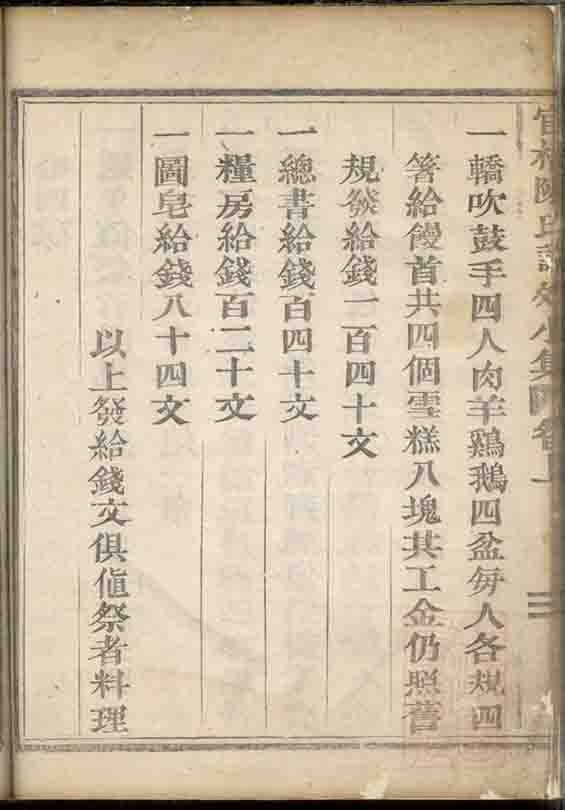 一轎吹鼓手四人肉羊鷄鵝四盆每人各規四
箸給饅首共四個雪糕八塊其工金仍照舊
規發給錢一百四十文
一總書給錢百四十文
一糧房給錢百二十文
一圖皂給錢八十四文
以上發給錢文俱值祭者料理